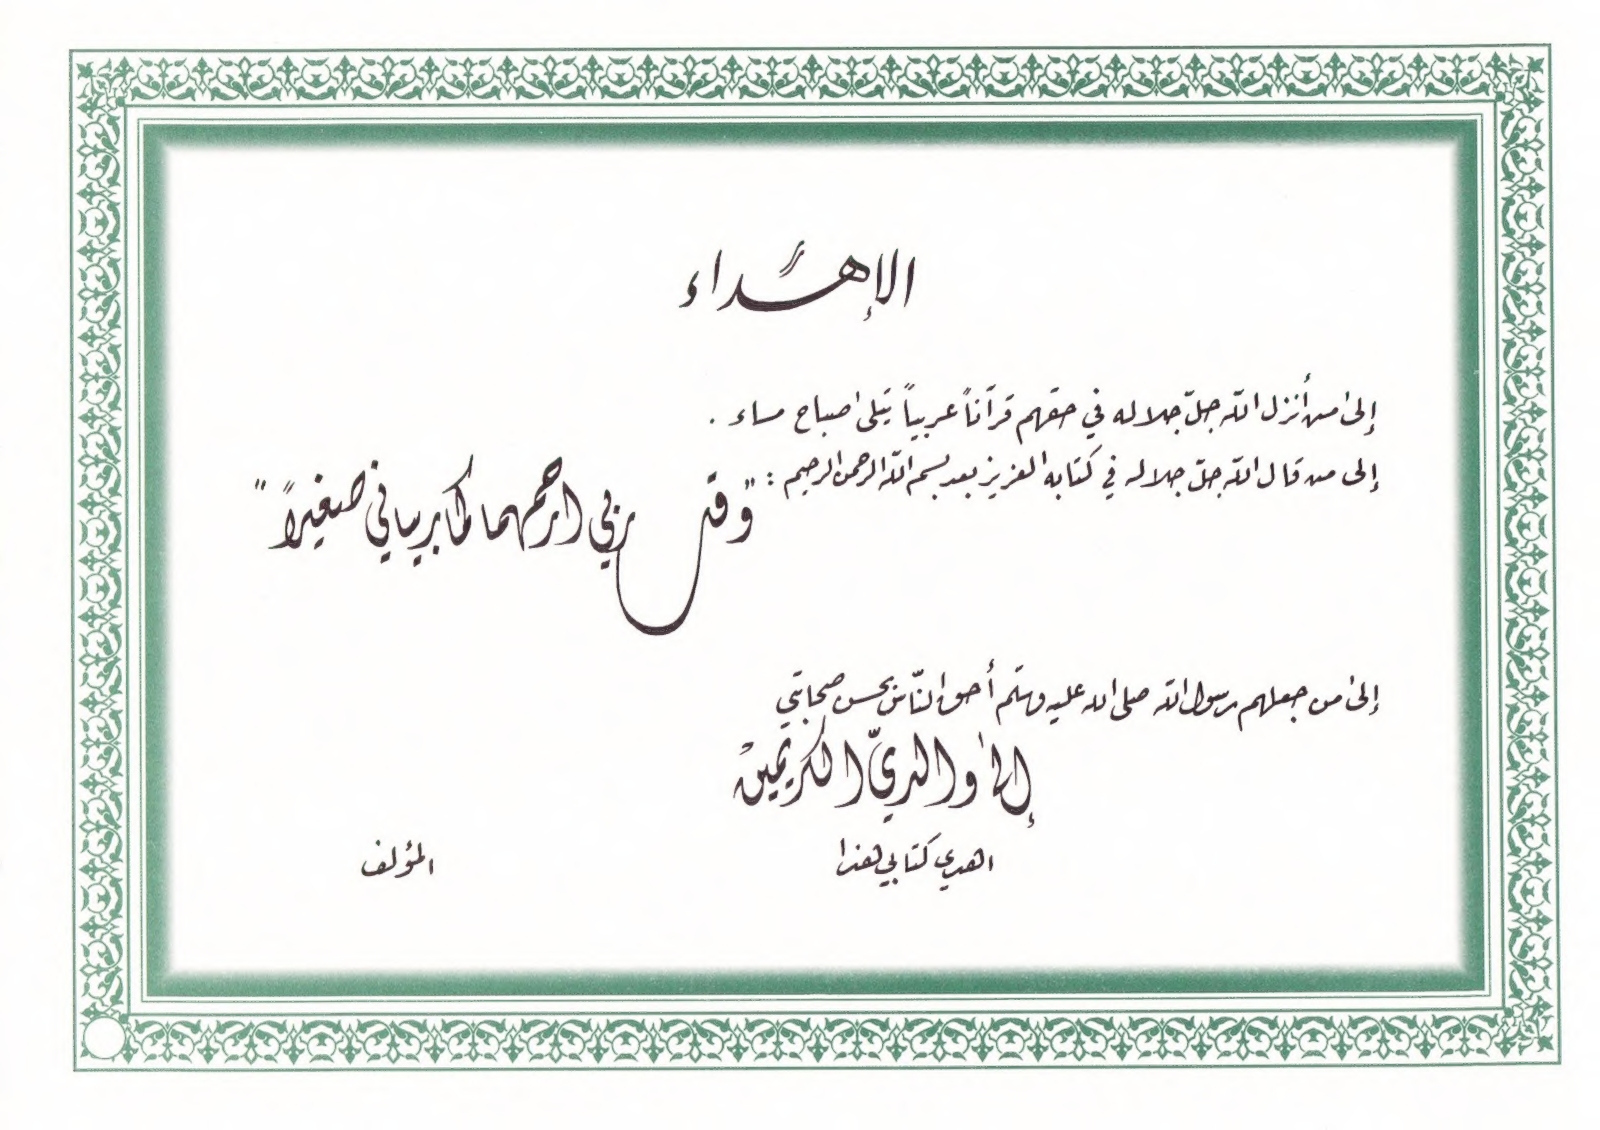 الإهداء
إلى من أنزل الله جلّ جلاله في حقهم قرآناً عربياً يتلى صباح مساء .
إلى من قال الله جلّ جلاله في كتابه العزيز بعد بسم الله الرحمن الرحيم :
"وقل ربي ارحمهما كما ربياني صغيراً"
إلى من جعلهم رسول الله صلى الله عليه وسلّم أحق النّاس بحسن صحابتي
إلى والديّ الكريمين
اهدي كتابي هذا
المؤلف